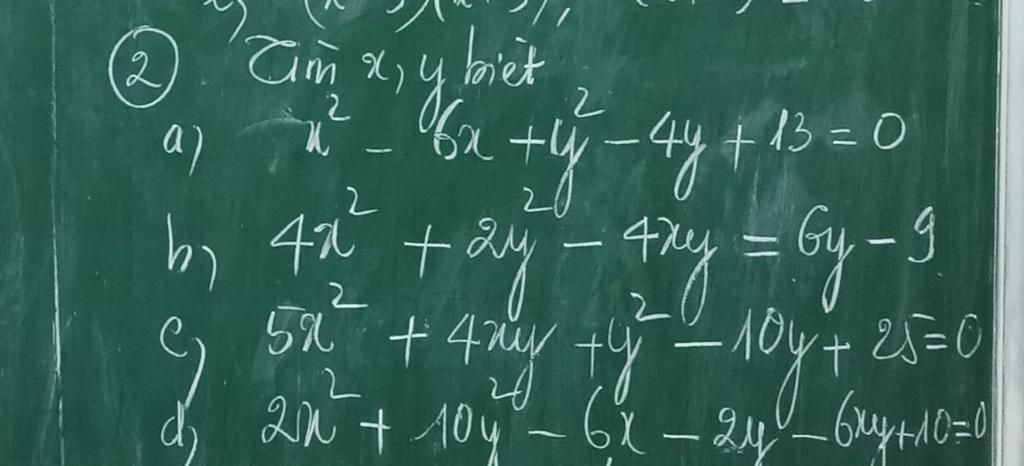 ② Tìm x, y biết
a) x² - 6x + y² - 4y + 13 = 0
b) 4x² + 2y² - 4xy = 6y - 9
c) 5x² + 4xy + y² - 10y + 25 = 0
d) 2x² + 10y² - 6x - 2y - 6xy + 10 = 0